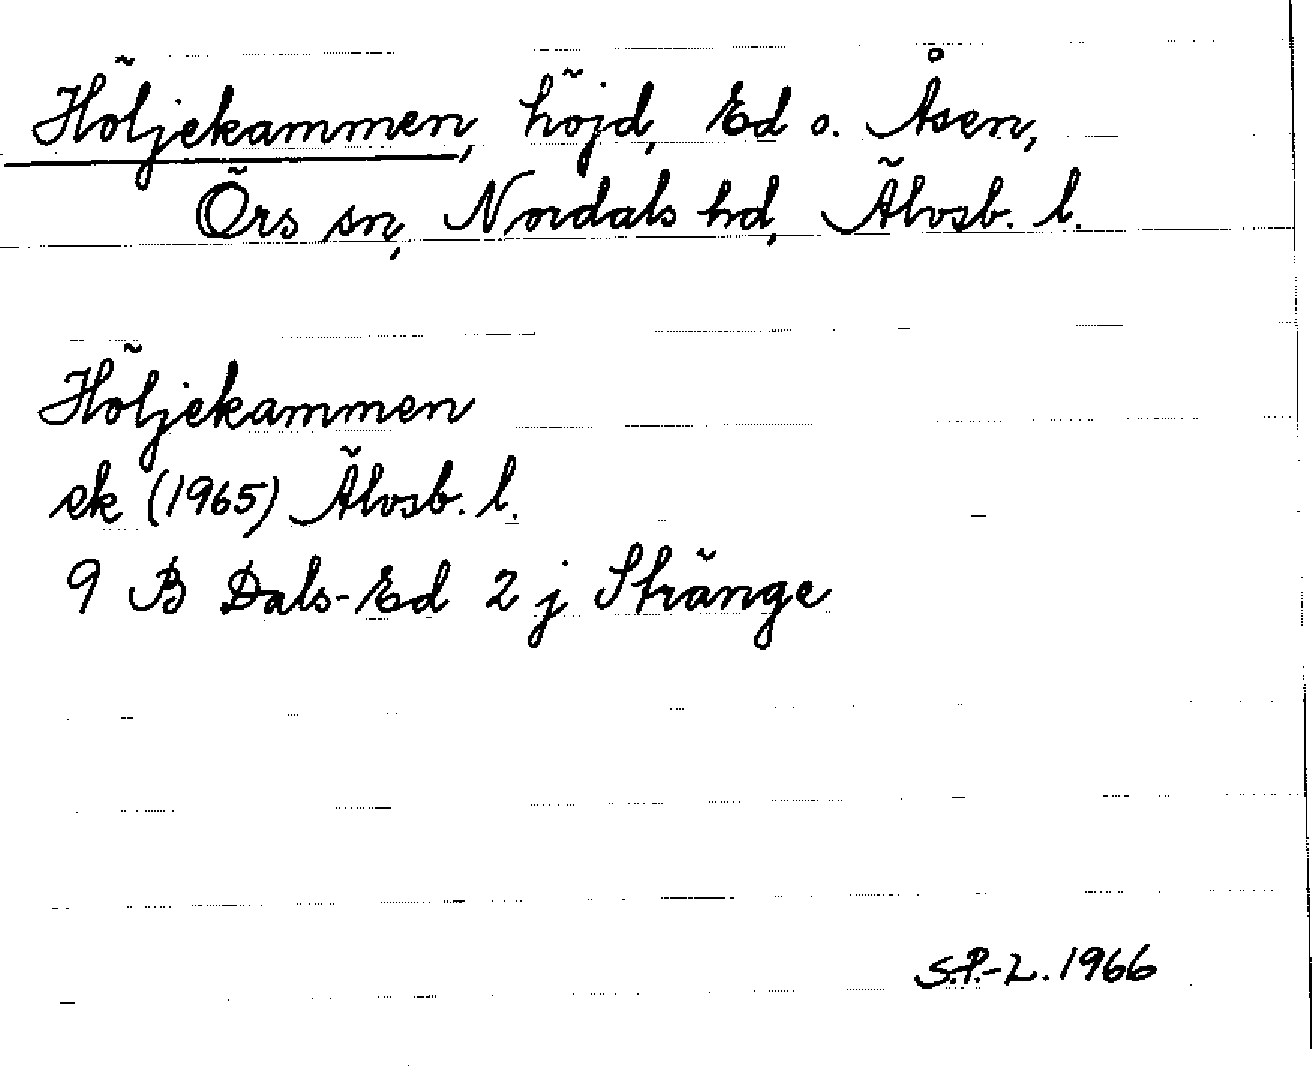 Höljekammen, höjd, Ed o. Åsen,
Örs sn, Nordals hd, Älvsb. l.
Höljekammen
ek (1965) Älvsb. l.
9 B Dals-Ed 2 j Stränge
S.P.-L. 1966